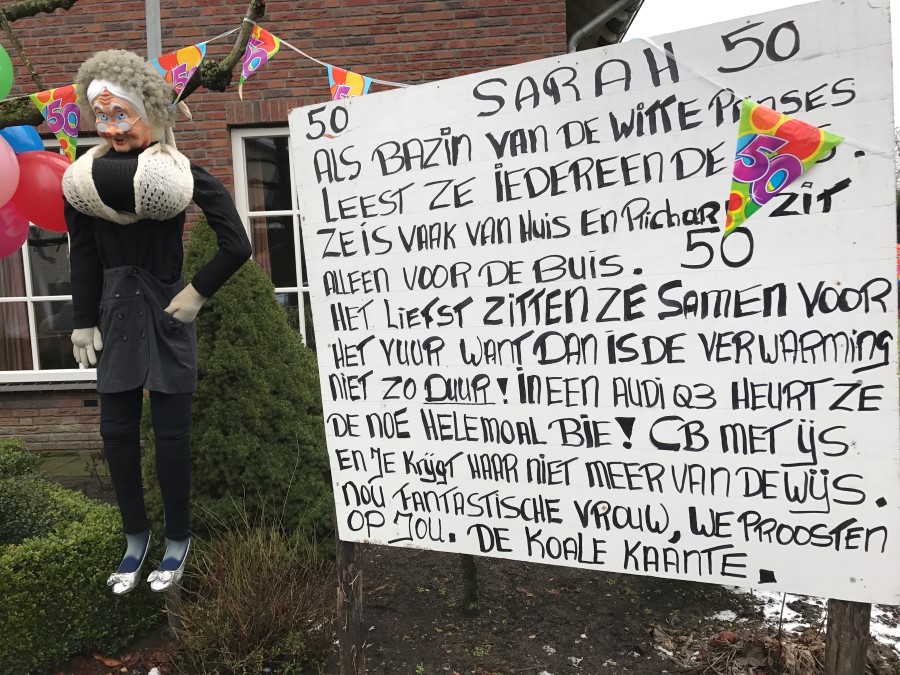 50
50
50
50
50
50 SARAH 50
ALS BAZIN VAN DE WITTE PRINSES
LEEST ZE IEDEREEN DE
ZE IS VAAK VAN HUIS EN Richar ZIT
ALLEEN VOOR DE BUIS. 50
HET LIEFST ZITTEN ZE SAMEN VOOR
HET VUUR WANT DAN IS DE VERWARMING
NIET ZO DUUR! IN EEN AUDI Q3 HEURT ZE
DE NOE HELEMOAL BIE! CB MET IJS
EN JE KRIJGT HAAR NIET MEER VAN DE WIJS.
NOU FANTASTISCHE VROUW, WE PROOSTEN
OP JOU. DE KOALE KAANTE.